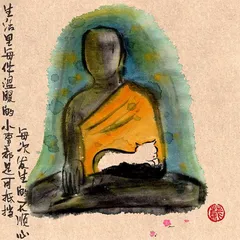 生活里每件温暖的小事都足可抵挡
每次发生的不顺心